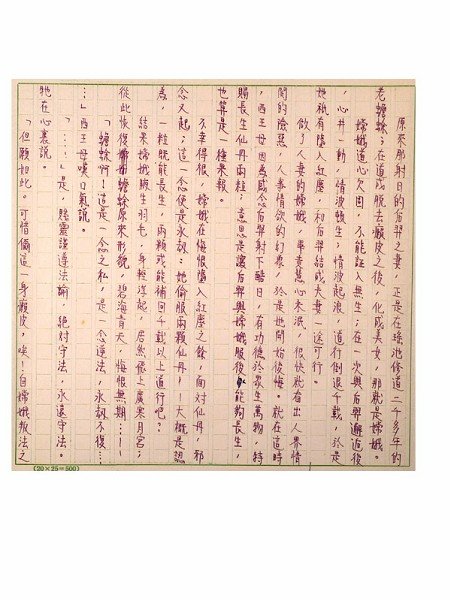 原來那射日的后羿之妻，正是在瑤池修道二千多年的
老蟾蜍；在道成脫去癩皮之後，化成美女，那就是嫦娥。
嫦娥道心欠固，不能証入無生；在一次與后羿邂逅後
，心井一動，情波頓生；情波起浪，道行倒退千載，於是
她祇有墮入紅塵，和后羿結成夫妻一途可行。
做了人妻的嫦娥，畢竟慧心未泯，很快就看出人界情
関的險惡，人慕情欲的幻象，於是她開始後悔。就在這時
，西王母因為感念后羿射下酷日，有功德於眾生萬物，特
賜長生仙丹兩粒；意思是讓后羿與嫦娥服後能夠長生，
也算是一種果報。
不幸得很，嫦娥在悔恨墮入紅塵之餘，面對仙丹，邪
念又起；這一念便是永刼；她偷服兩顆仙丹——大概是認
為，一粒既能長生，兩顆或能補回千載以上道行吧？
結果嫦娥腋生羽毛，身輕浮起，居然偎上廣寒月宮；
從此恢復蟾蜍原來形貌，碧海青天，悔恨無期……
「蟾蜍啊！這是一念之私，是一念違法，永刼不復…
…」西王母嘆口氣說。
「……」是，賤靈謹遵法諭，絕對守法，永遠守法。
牠在心裏說。
「但願如此。可惜偏這一身癩皮，唉！自嫦娥叛法之
(20×25＝500)